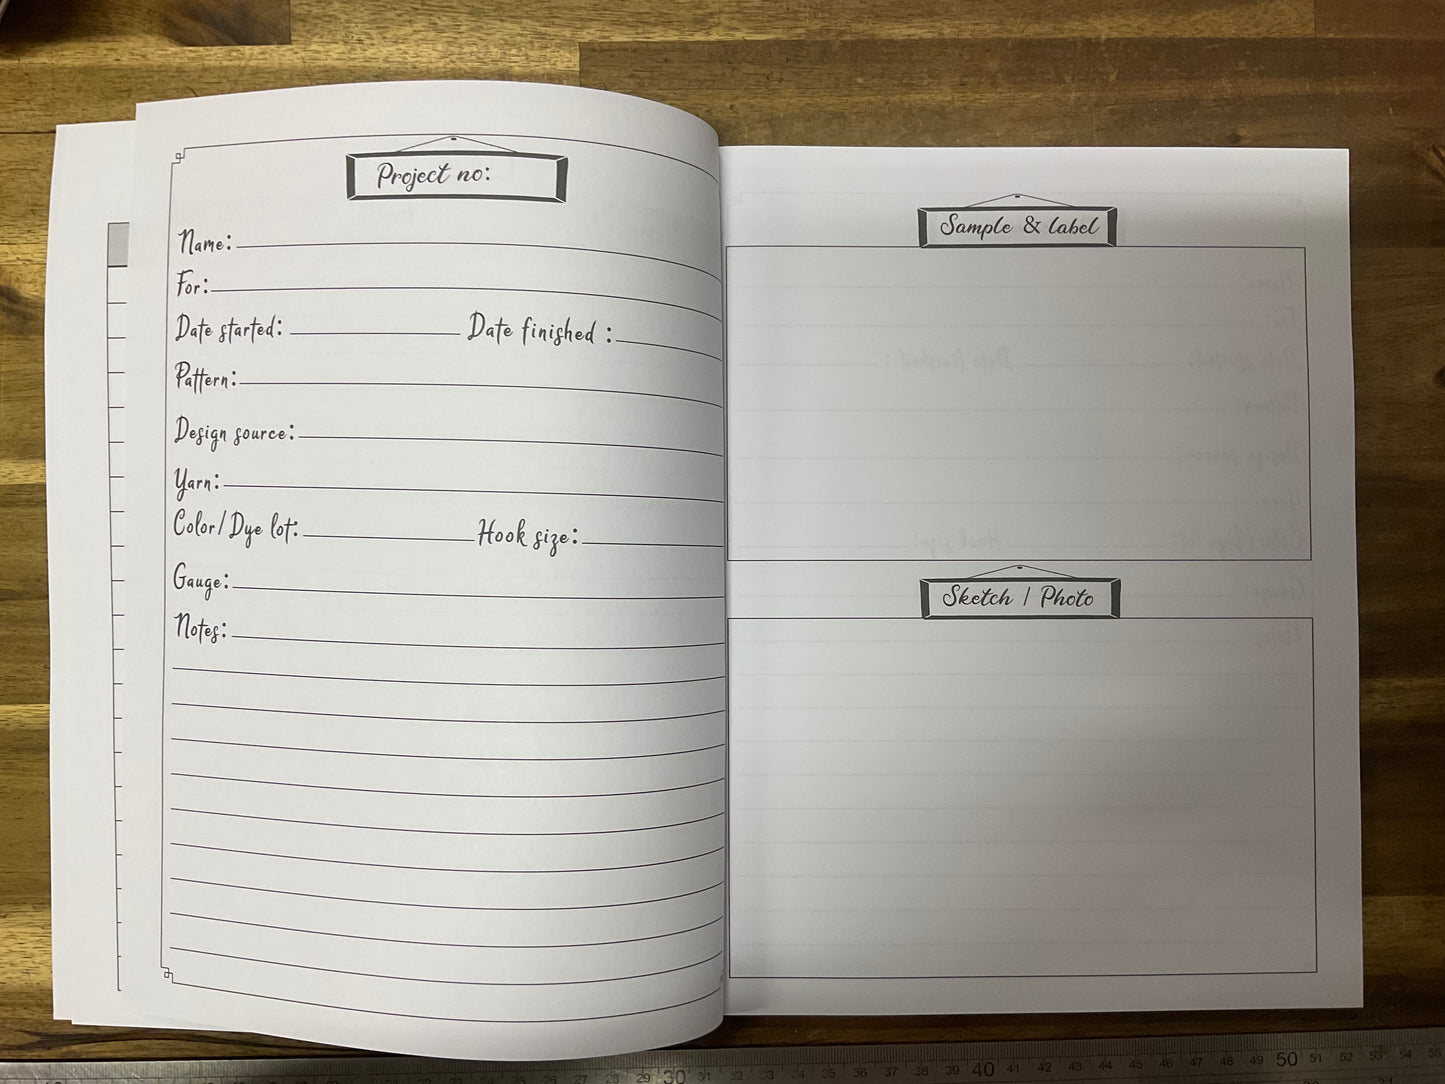 Project no:
Name:
For:
Date started: Date finished :
Pattern:
Design source:
Yarn:
Color/Dye lot: Hook size:
Gauge:
Notes:
Sample & label
Sketch / Photo
30 31 32 33 34 35 36 37 38 39 40 41 42 43 44 45 46 47 48 49 50 51 52 53 54 55